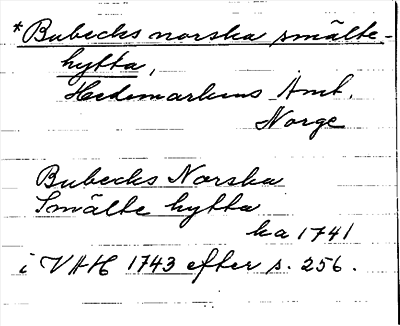 *Bubecks norska smälte-
hytta,
Hedemarkens Amt.
Norge
Bubecks Norska
Smälte hytta
ka 1741
i VAH 1743 efter s. 256.